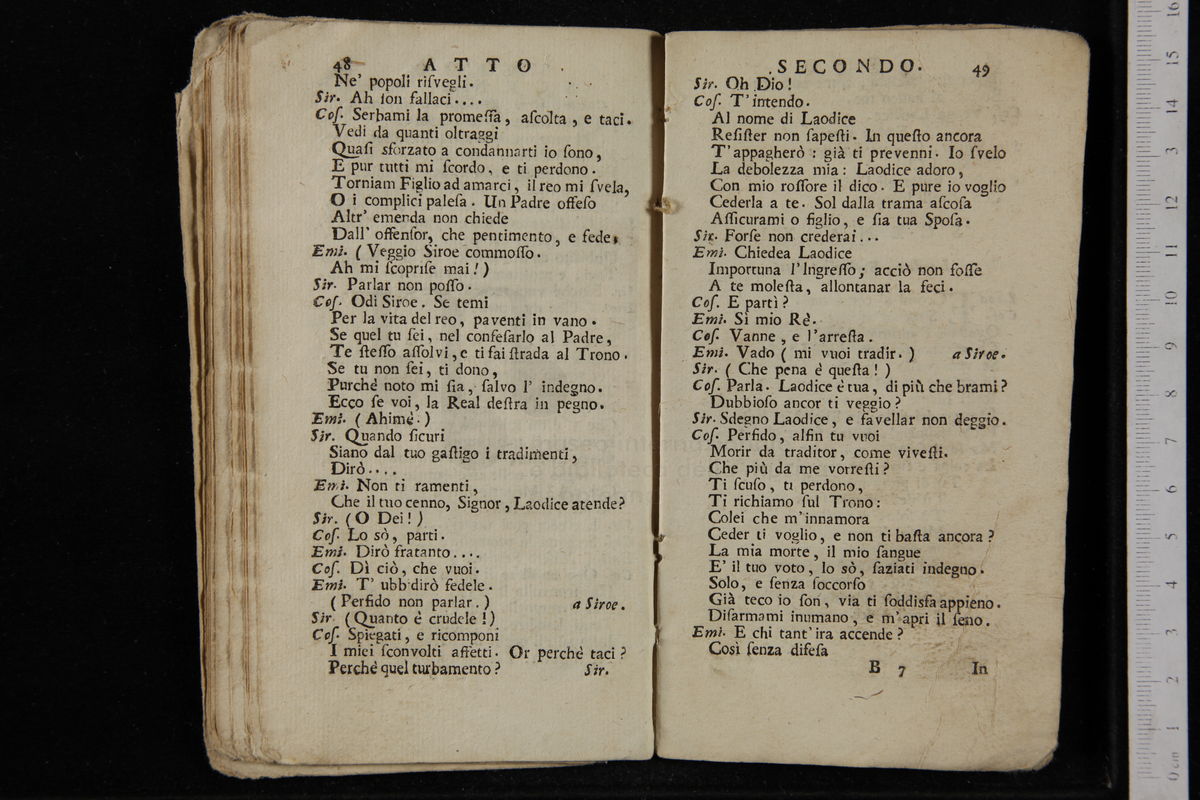 48 ATTO
Ne' popoli riſvegli.
Sir. Ah ſon fallaci....
Coſ. Serbami la promeſſa, aſcolta, e taci.
Vedi da quanti oltraggi
Quaſi sforzato a condannarti io ſono,
E pur tutti mi ſcordo, e ti perdono.
Torniam Figlio ad amarci, il reo mi ſvela,
O i complici paleſa. Un Padre offeſo
Altr' emenda non chiede
Dall' offenſor, che pentimento, e fede.
Emi. (Veggio Siroe commoſſo.
Ah mi ſcopriſe mai!)
Sir. Parlar non poſſo.
Coſ. Odi Siroe. Se temi
Per la vita del reo, paventi in vano.
Se quel tu ſei, nel confeſarlo al Padre,
Te ſteſſo aſſolvi, e ti fai ſtrada al Trono.
Se tu non ſei, ti dono,
Purchè noto mi ſia, ſalvo l' indegno.
Ecco ſe voi, la Real deſtra in pegno.
Emi. (Ahimè.)
Sir. Quando ſicuri
Siano dal tuo gaſtigo i tradimenti,
Dirò....
Emi. Non ti ramenti,
Che il tuo cenno, Signor, Laodice atende?
Sir. (O Dei!)
Coſ. Lo sò, parti.
Emi. Dirò fratanto....
Coſ. Dì ciò, che vuoi.
Emi. T' ubbidirò fedele.
(Perfido non parlar.) a Siroe.
Sir. (Quanto è crudele!)
Coſ. Spiegati, e ricomponi
I miei ſconvolti affetti. Or perchè taci?
Perchè quel turbamento? Sir.
SECONDO. 49
Sir. Oh Dio!
Coſ. T' intendo.
Al nome di Laodice
Reſiſter non ſapeſti. In queſto ancora
T' appagherò: già ti prevenni. Io ſvelo
La debolezza mia: Laodice adoro,
Con mio roſſore il dico. E pure io voglio
Cederla a te. Sol dalla trama aſcoſa
Aſſicurami o figlio, e ſia tua Spoſa.
Sir. Forſe non crederai...
Emi. Chiedea Laodice
Importuna l'Ingreſſo; acciò non foſſe
A te moleſta, allontanar la feci.
Coſ. E partì?
Emi. Sì mio Rè.
Coſ. Vanne, e l'arreſta.
Emi. Vado (mi vuoi tradir.) a Siroe.
Sir. (Che pena è queſta!)
Coſ. Parla. Laodice è tua, di più che brami?
Dubbioſo ancor ti veggio?
Sir. Sdegno Laodice, e favellar non deggio.
Coſ. Perfido, alfin tu vuoi
Morir da traditor, come viveſti.
Che più da me vorreſti?
Ti ſcuſo, ti perdono,
Ti richiamo ſul Trono:
Colei che m'innamora
Ceder ti voglio, e non ti baſta ancora?
La mia morte, il mio ſangue
E' il tuo voto, lo sò, ſaziati indegno.
Solo, e ſenza ſoccorſo
Già teco io ſon, via ti ſoddisfa appieno.
Diſarmami inumano, e m'apri il ſeno.
Emi. E chi tant'ira accende?
Così ſenza difeſa
B 7 In